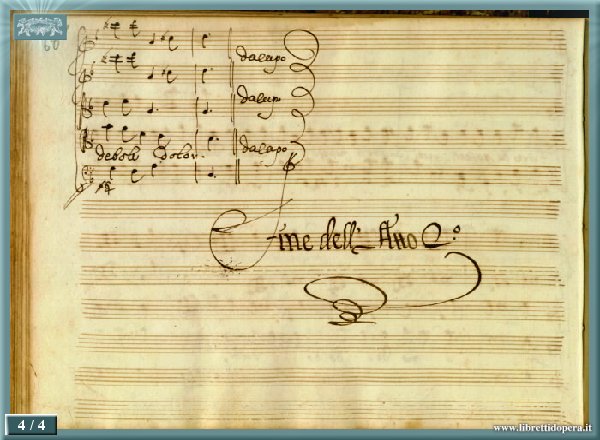 60
da capo
da capo
deboli dolor. da capo
Fine dell' Atto
4 / 4
www.librettidopera.it